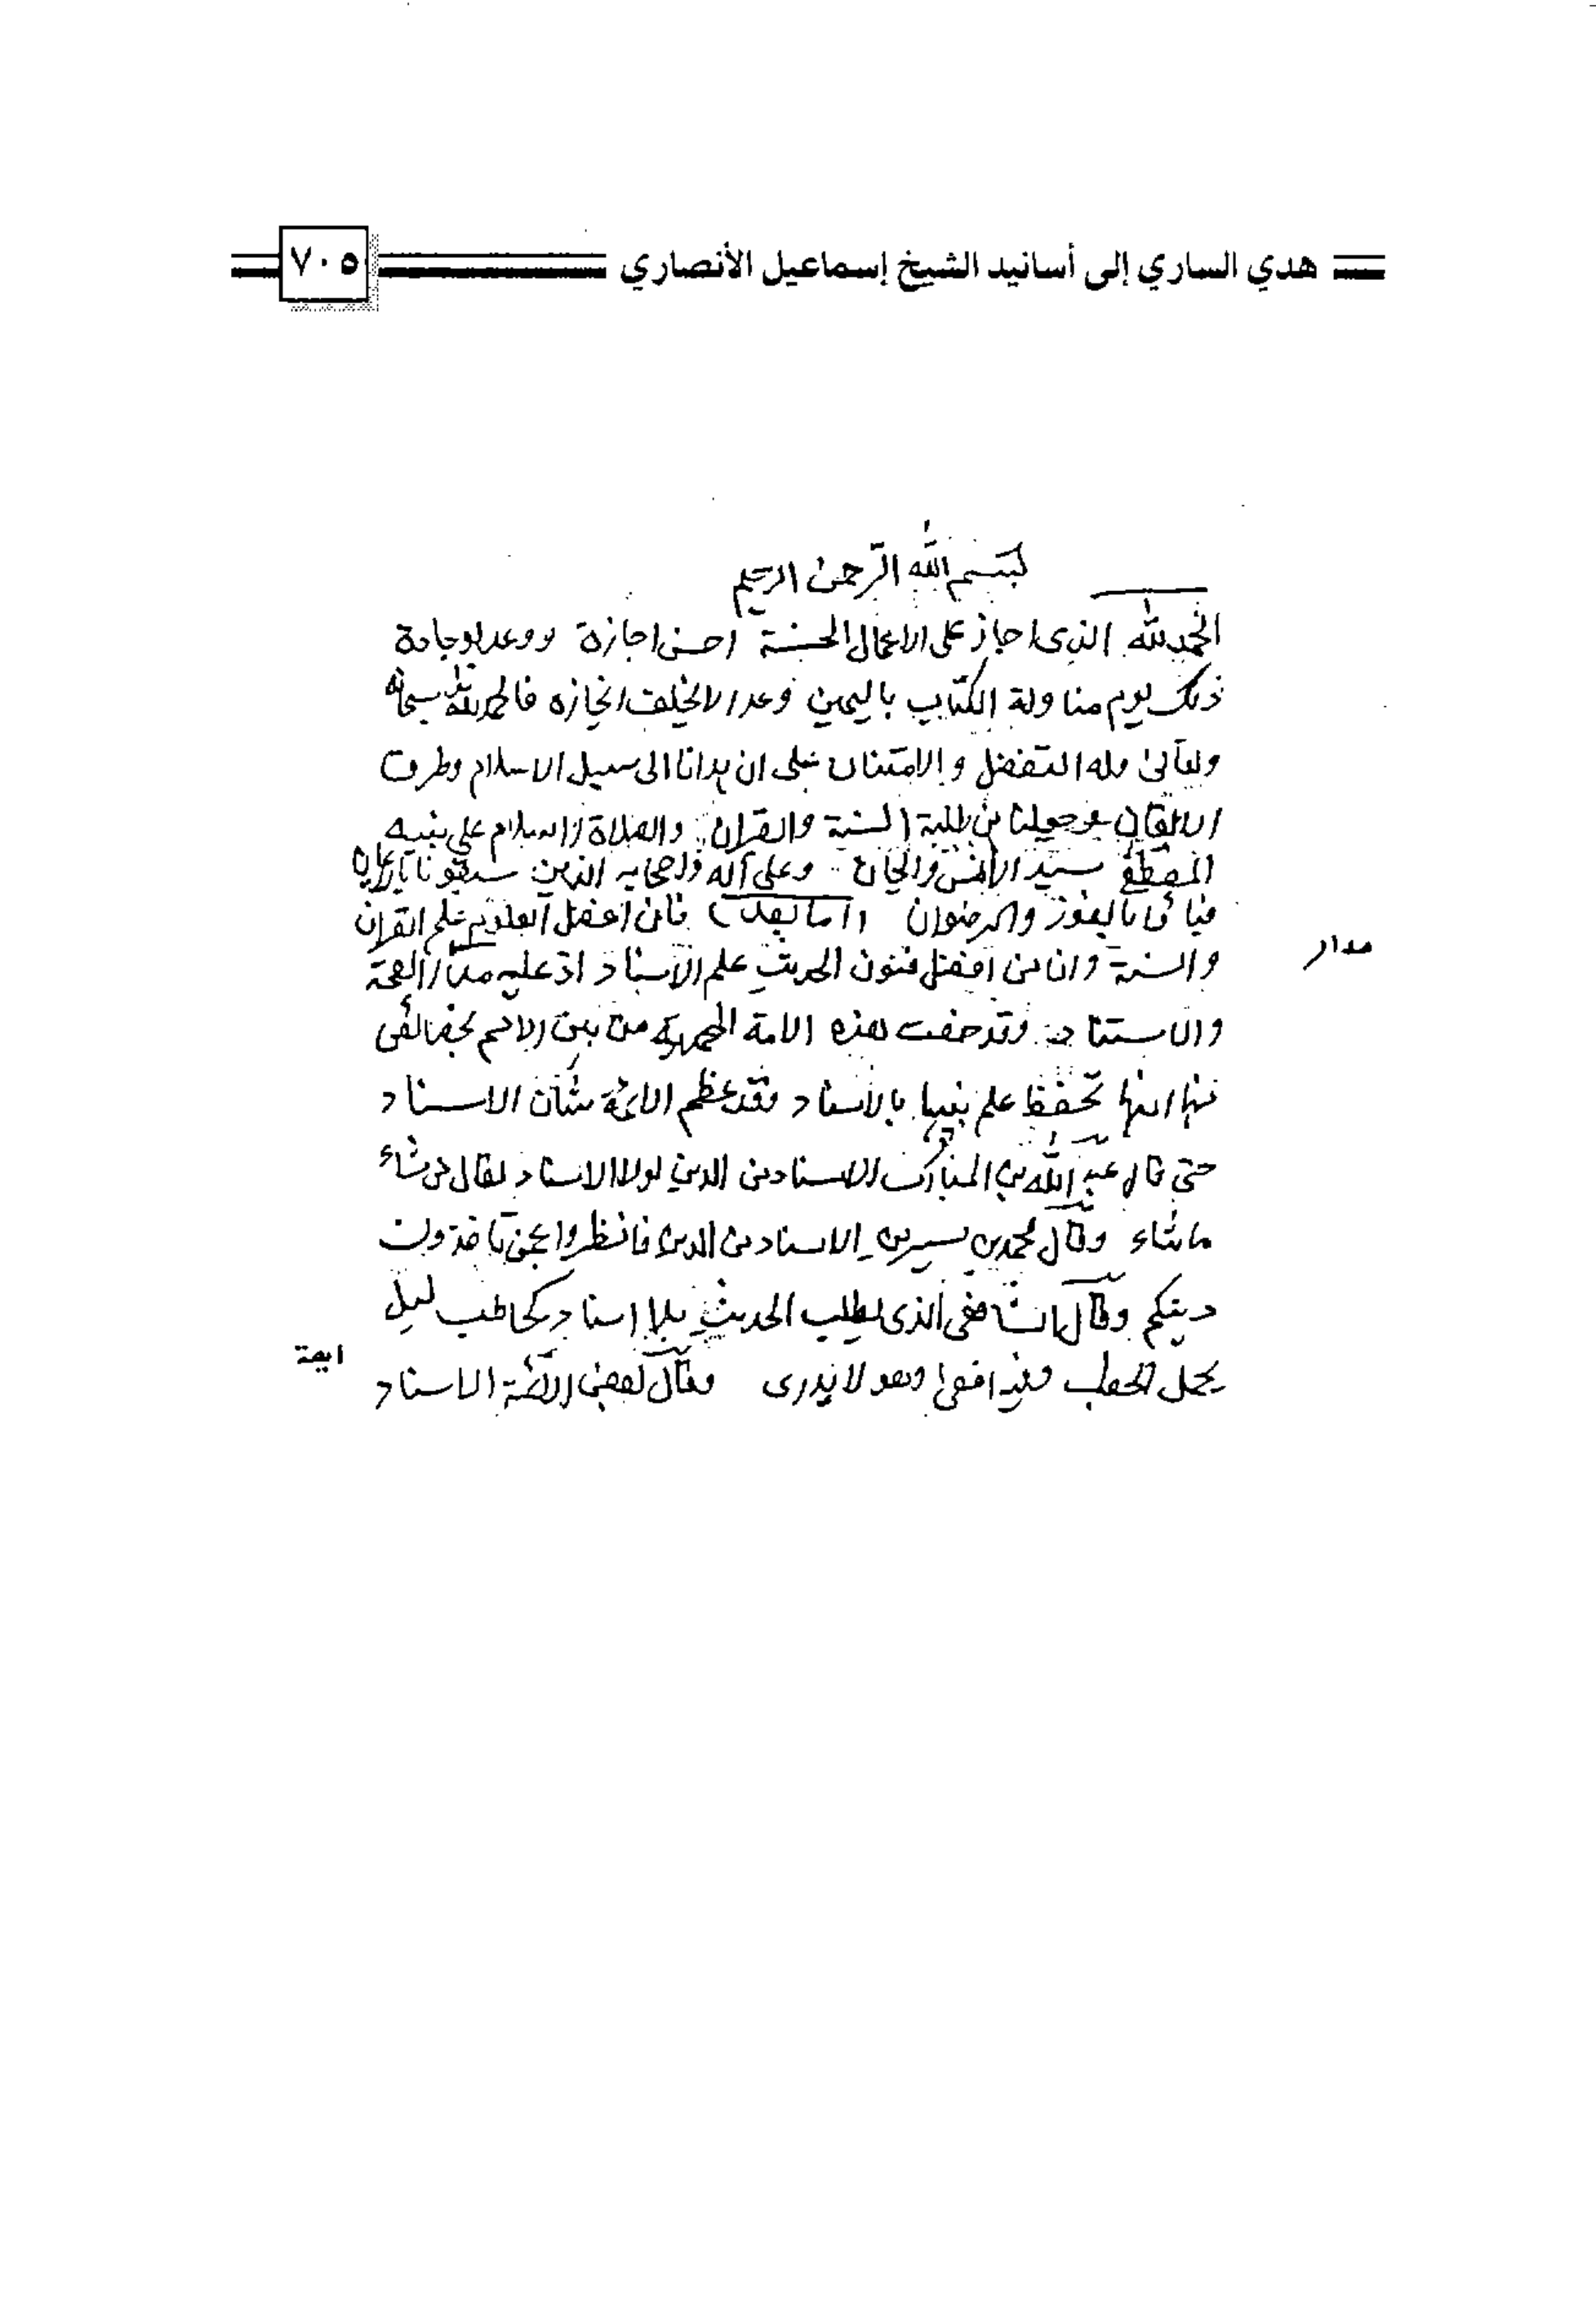 هدي الساري إلى أسانيد الشيخ إسماعيل الأنصاري ٧٠٥
بسم الله الرحمن الرحيم
الحمد لله الذى اجاز على الاعمال الحسنة احسن اجازة ووعد بوجادة
ذلك يوم مناولة الكتاب باليمين وعدا لا يخلف انجازه فالحمد لله سبحانه
وتعالى وله التفضل والامتنان على ان هدانا الى سبيل الاسلام وطرق
الاتقان وجعلنا من طلبة السنة والقران والصلاة والسلام على نبيه
المصطفى سيد الانس والجان وعلى آله واصحابه الذين سبقونا بالايمان
بالفوز والرضوان (اما بعد) فان افضل العلوم علم القران
والسنة وان من افضل فنون الحديث علم الاسناد اذ عليه مدار الصحة
مدار
والاستناد وقد خصت هذه الامة المحمدية من بين الامم بخصائص
منها انها تحفظ علم نبيها بالاسناد وقد عظم الائمة شأن الاسناد
حتى قال عبد الله بن المبارك الاسناد من الدين لولا الاسناد لقال من شاء
ما شاء وقال محمد بن سيرين الاسناد من الدين فانظروا عمن تأخذون
دينكم وقال الشافعى الذى يطلب الحديث بلا اسناد كحاطب ليل
يحمل الحطب وفيه افعى وهو لا يدرى وقال بعض الائمة الاسناد